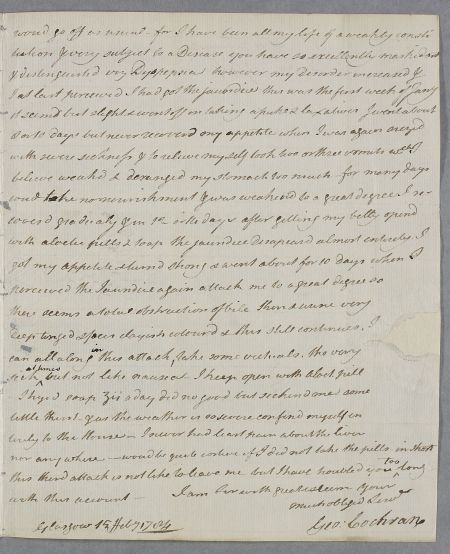 would go off as usual - for I have been all my life of a weakly consti
tution & very subject to a Disease you have so excellently marked out
& distinguished viz Dyspepsia however my disorder increased &
I at last perceived I had got the jaundice this was the first week of Janry
it seemd but slight & went off on taking a puke & laxatives I went about
8 or 10 days but never recovered my appetite when I was again seized
with severe sickness & to relieve myself took two or three vomits wch I
believe weakned & deranged my stomach too much - for many days
coud take no nourishment & was weakend to a great degree I re
coverd gradually & in 12 days after getting my belly opend
with aloetic pills & soap the jaundice disapeard almost entirely I
got my appetite & turnd strong & went about for 10 days when I
perceived the Jaundice again attack me to a great degree so
there seems a total obstruction of bile the urine very
deep tinged, & faeces clayish colourd & this still continues. I
can all along in this attack, take some victuals, tho very
sick at times, but not like nausea. I keep open with Aloet: pill
I tryd soap ʒiii a day did no good but sickend me some
little thirst & as the weather is so severe confind myself in
tirely to the House - I never had least pain about the liver
nor any where - would be quite costive if I did not take the pills in short
this third attack is not like to leave me but I have troubled you too long
with this account - I am Sir with great esteem Your
much obliged Servt
Glasgow 12 Feby 1784 Geo: Cochran